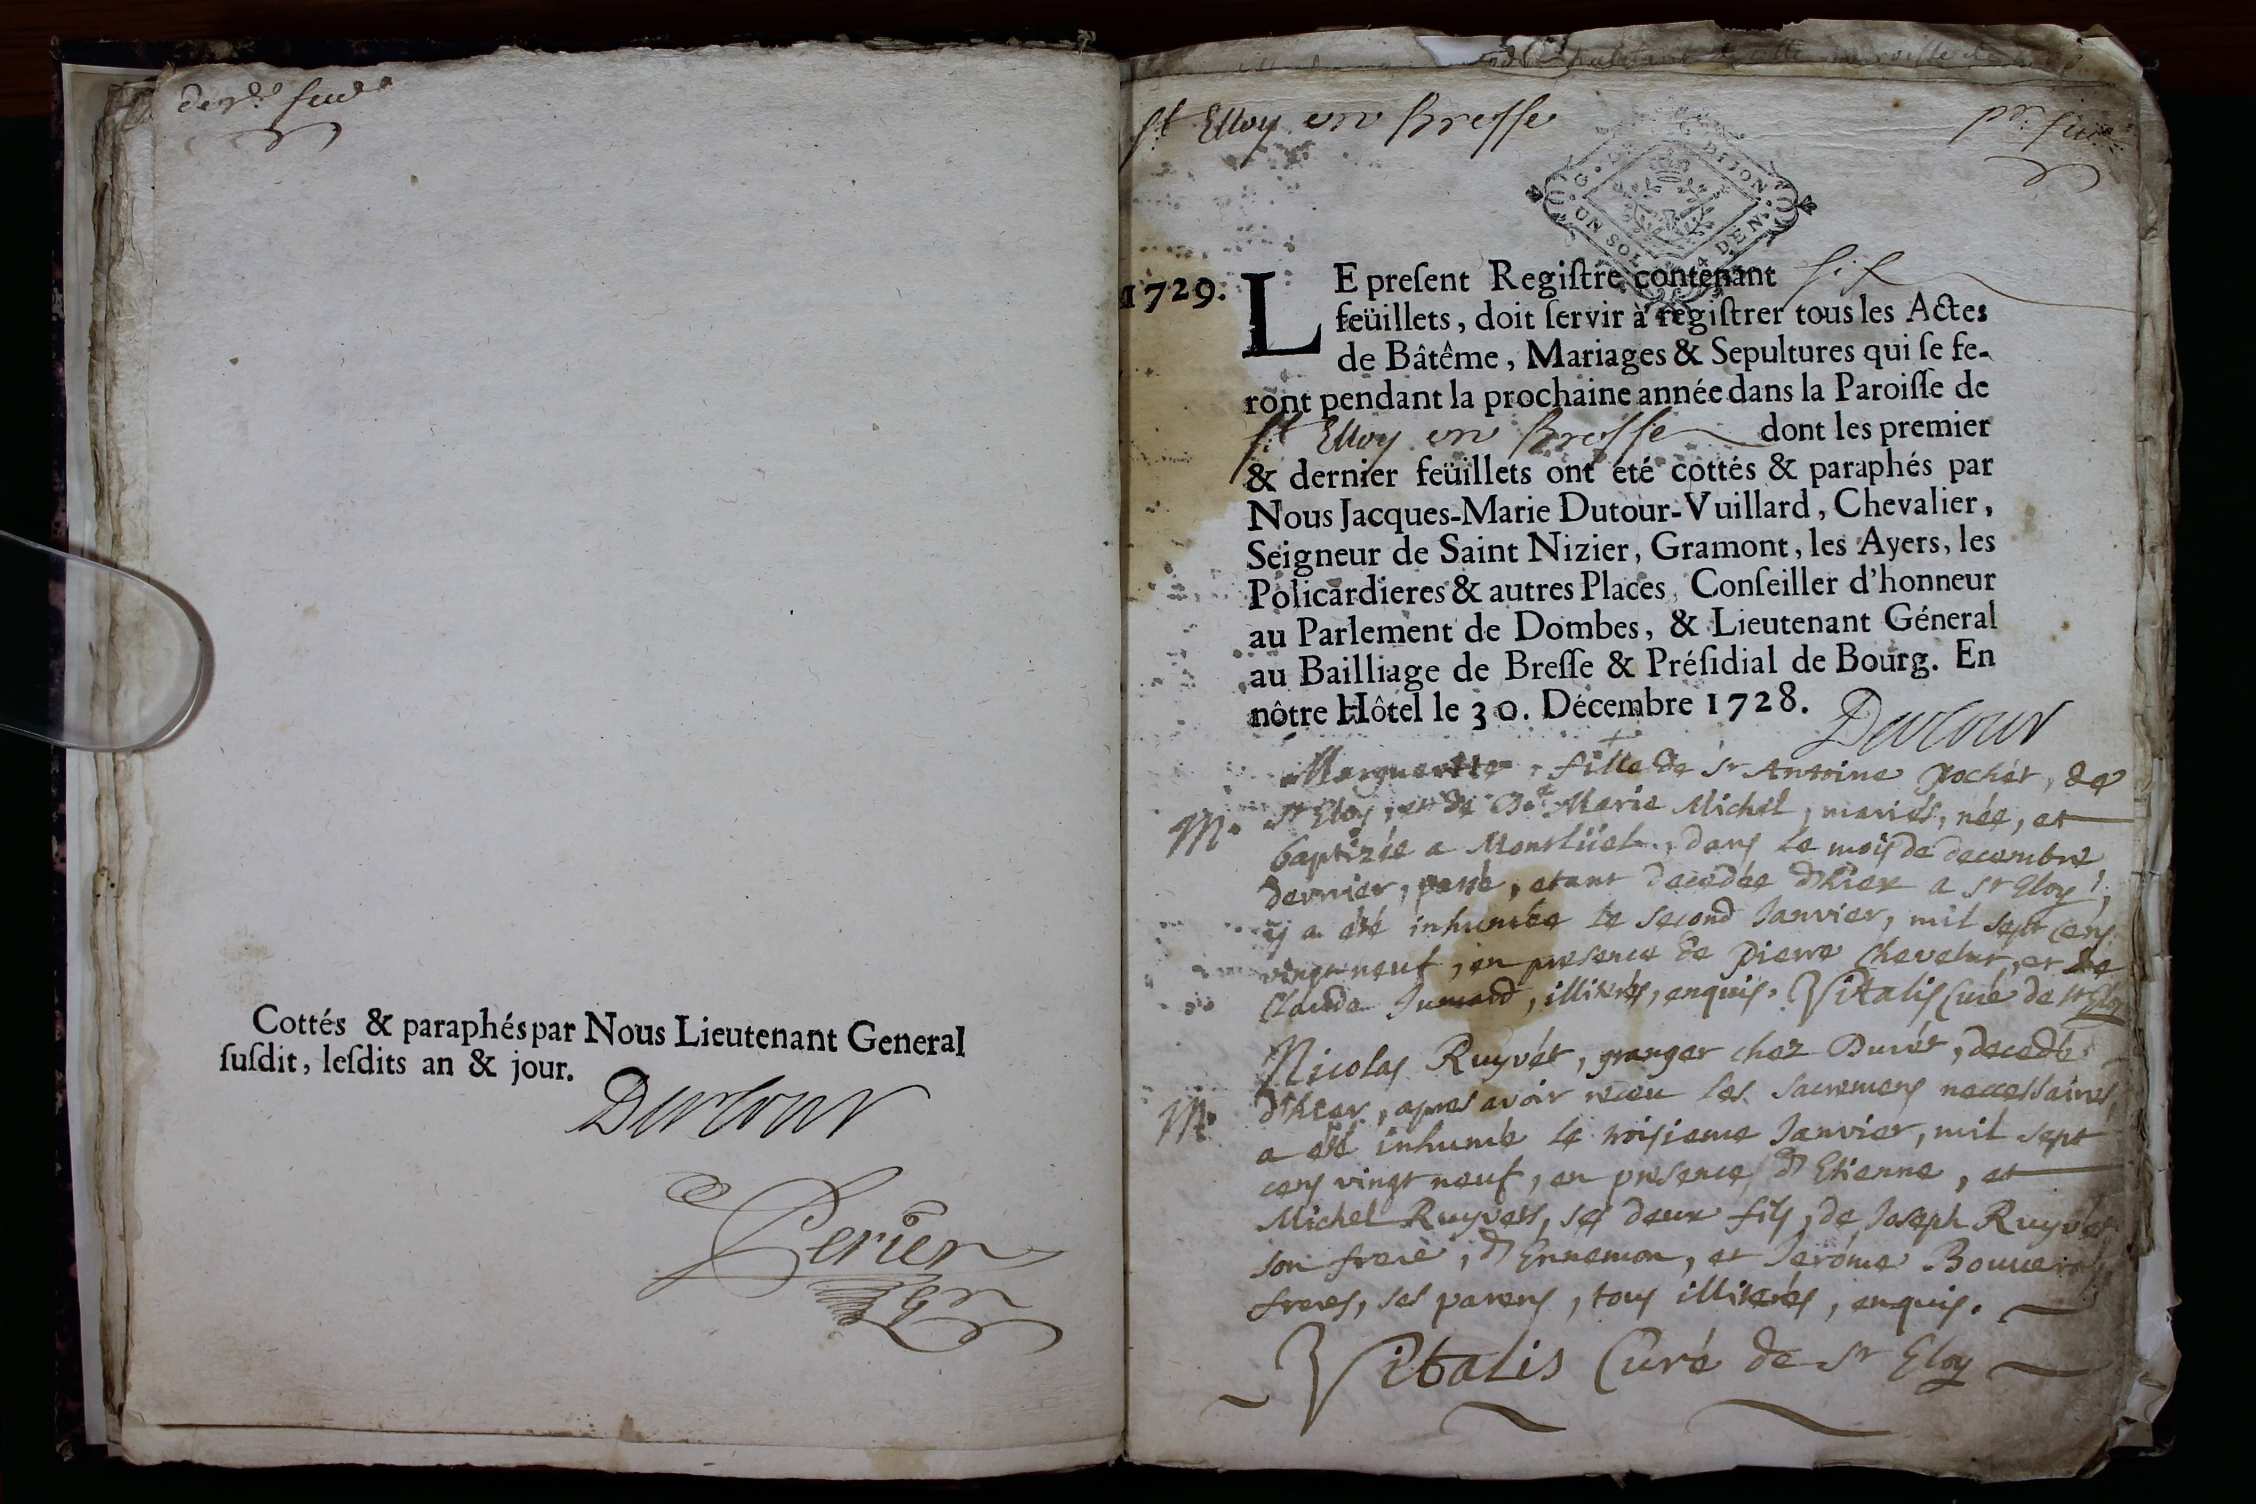 St Elloy en Bresse
G. D. DIJON
UN SOL 4 DEN.
1729.
LE preſent Regiſtre contenant six
feüillets, doit ſervir à regiſtrer tous les Actes
de Bâtême, Mariages & Sepultures qui ſe fe-
ront pendant la prochaine année dans la Paroiſſe de
St Elloy en Bresse dont les premier
& dernier feüillets ont eté cottés & paraphés par
Nous Jacques-Marie Dutour-Vuillard, Chevalier,
Seigneur de Saint Nizier, Gramont, les Ayers, les
Policardieres & autres Places, Conſeiller d'honneur
au Parlement de Dombes, & Lieutenant Géneral
au Bailliage de Breſſe & Préſidial de Bourg. En
nôtre Hôtel le 30. Décembre 1728.
Dutour
Marguerite, fille de Sr Antoine pochet, de
St Eloy, et de De Marie Michel, mariés, née, et
M.
baptizée a Montlüel, dans le mois de decembre
dernier, passé, etant decedée d'hier a St Eloy,
y a été inhumée le second Janvier, mil sept cens
vingt neuf, en presence de pierre chevelut, et de
Claude Jumard, illiterés, enquis. Vitalis Curé de St Eloy
Nicolas Ruyvét, granger chez Burét, decedé
M.
d'hier, apres avoir receu les sacremens neccessaires,
a été inhumé le troisieme Janvier, mil sept
cens vingt neuf, en presence d'Etienne, et
Michel Ruyvets, ses deux fils, de Joseph Ruyvét
son frere, d'Ennemon, et Jerôme
freres, ses parens, tous illiterés, enquis.
Vitalis Curé de St Eloy
Cottés & paraphés par Nous Lieutenant General
ſuſdit, leſdits an & jour.
Dutour
Perier